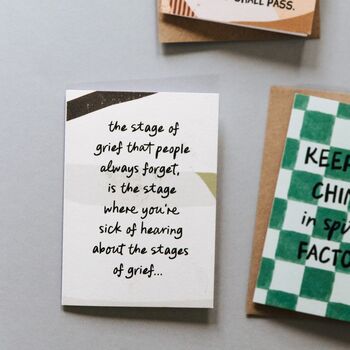 SHALL PASS.
the stage of
grief that people
always forget,
is the stage
where you're
sick of hearing
about the stages
of grief...
KEEP
CHIN
in
FACTO